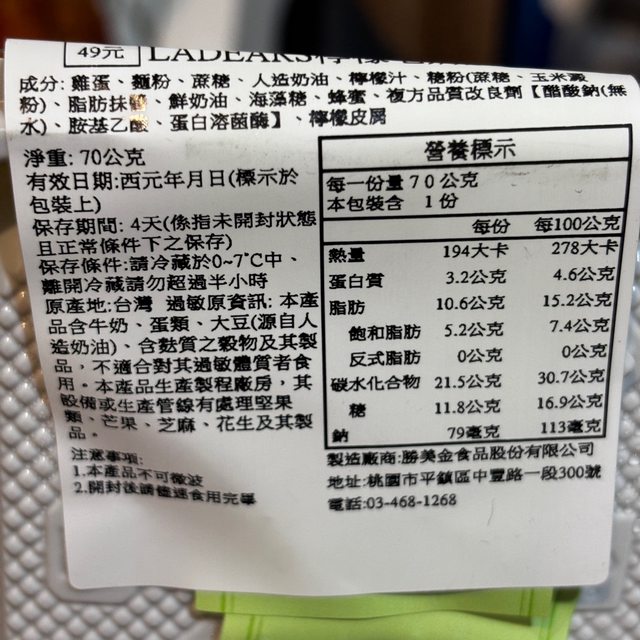 49元 LADEARS檸檬
成分: 雞蛋、麵粉、蔗糖、人造奶油、檸檬汁、糖粉(蔗糖、玉米澱
粉)、脂肪抹醬、鮮奶油、海藻糖、蜂蜜、複方品質改良劑【醋酸鈉(無
水)、胺基乙酸、蛋白溶菌酶】、檸檬皮屑
淨重: 70公克
有效日期:西元年月日(標示於
包裝上)
保存期間: 4天(係指未開封狀態
且正常條件下之保存)
保存條件:請冷藏於0~7℃中、
離開冷藏請勿超過半小時
原產地:台灣 過敏原資訊: 本產
品含牛奶、蛋類、大豆(源自人
造奶油)、含麩質之穀物及其製
品，不適合對其過敏體質者食
用。本產品生產製程廠房，其
設備或生產管線有處理堅果
類、芒果、芝麻、花生及其製
品。
注意事項:
1.本產品不可微波
2.開封後請儘速食用完畢
營養標示
每一份量 7 0 公克
本包裝含 1 份
每份 每100公克
熱量 194大卡 278大卡
蛋白質 3.2公克 4.6公克
脂肪 10.6公克 15.2公克
飽和脂肪 5.2公克 7.4公克
反式脂肪 0公克 0公克
碳水化合物 21.5公克 30.7公克
糖 11.8公克 16.9公克
鈉 79毫克 113毫克
製造廠商:勝美金食品股份有限公司
地址:桃園市平鎮區中豐路一段300號
電話:03-468-1268